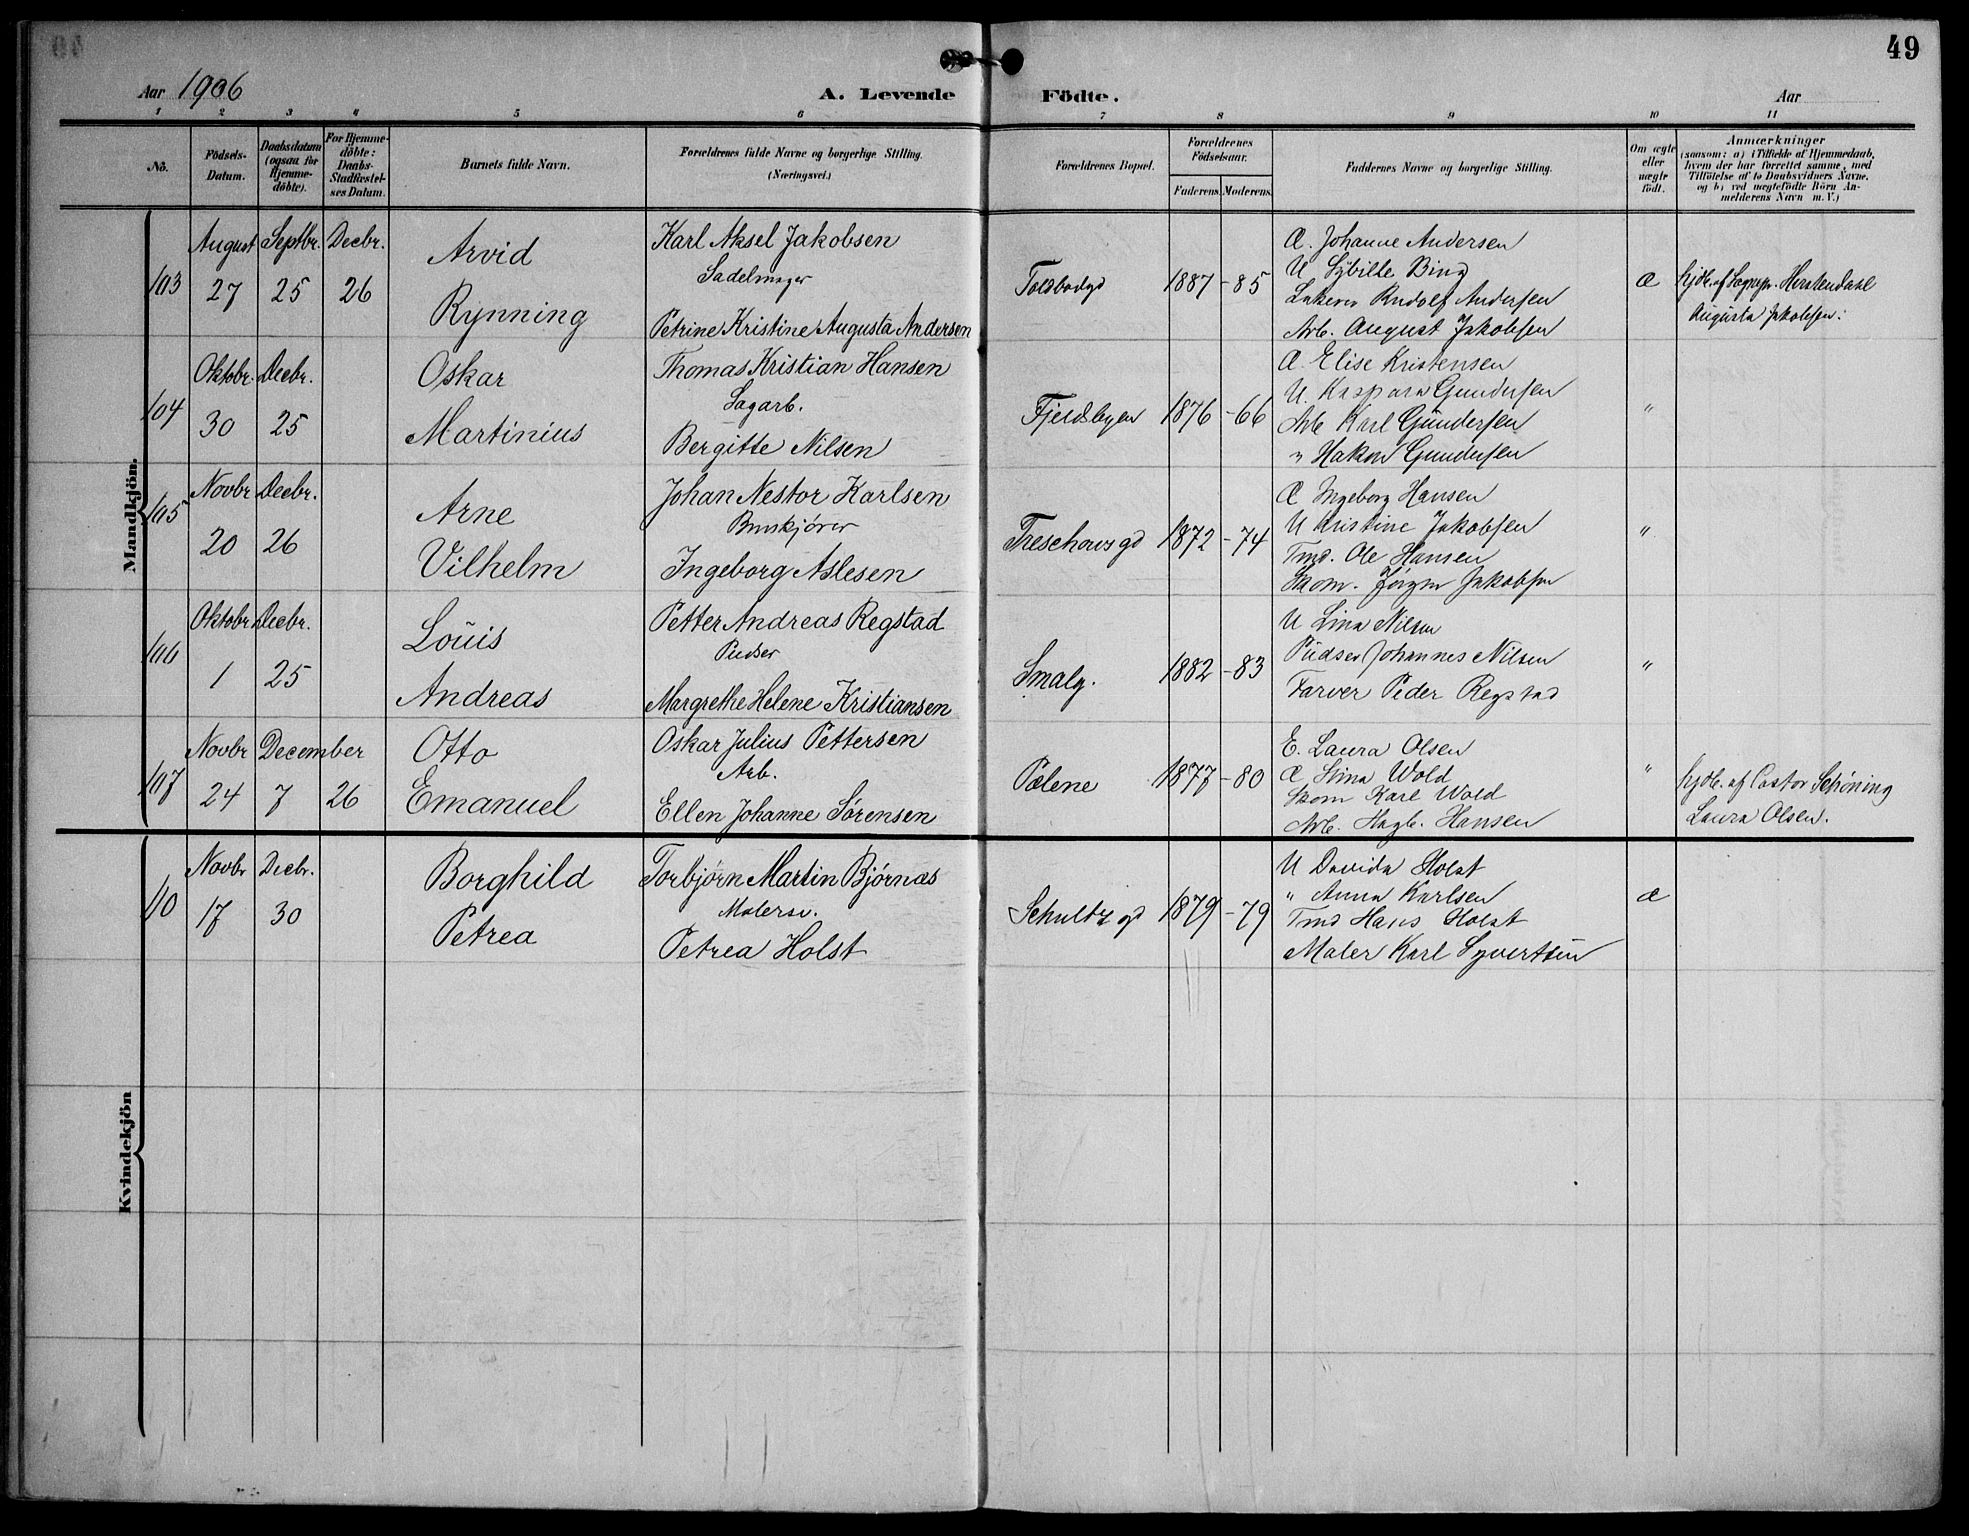 49
Aar 1906
A. Levende Födte.
Aar
1 2 3 4 5 6 7 8 9 10 11
No.
Födsels-
Datum.
Daabsdatum
(ogsaa for
Hjemme-
döbte).
For Hjemme-
döbte:
Daabs-
Stadfæstel-
ses Datum.
Barnets fulde Navn.
Forældrenes fulde Navne og borgerlige Stilling.
(Næringsvei.)
Forældrenes Bopæl.
Forældrenes
Födselsaar.
Faderens. Moderens.
Faddernes Navne og borgerlige Stilling.
Om ægte
eller
uægte
födt.
Anmærkninger
(saasom: a) i Tilfælde af Hjemmedaab,
hvem der har forrettet samme, med
Tilföielse af to Daabsvidners Navne.
og b) ved uægtefödte Börn An-
melderens Navn m. V.)
Mandkjön.
103
August Septbr. Decbr.
27 25 26
Arvid
Rynning
Karl Aksel Jakobsen
Sadelmager
Petrine Kristine Augusta Andersen
Toldbodgd
1887 - 85
Æ. Johanne Andersen
U Sybille Bing
Rudolf Andersen
Arb. August Jakobsen
Æ
hjdb. af Sognepr.
Augusta Jakobsen.
104
Oktobr. Decbr.
30 25
Oskar
Martinius
Thomas Kristian Hansen
Sagarb.
Bergitte Nilsen
Fjeldbyen
1876 - 66
Æ Elise Kristensen
U. Kaspara Gundersen
Arb Karl Gundersen
" Hakon Gundersen
"
105
Novbr Decbr.
20 26
Arne
Vilhelm
Johan Nestor Karlsen
Bruskjører
Ingeborg Aslesen
Treschowsgd
1872 - 74
Æ Ingeborg Hansen
U Kristine Jakobsen
Tmd. Ole Hansen
Skom. Jörgen Jakobsen
"
106
Oktobr Decbr.
1 25
Louis
Andreas
Petter Andreas Regstad
Pudser
Margrethe Helene Kristiansen
Smalg.
1882 - 83
U Lina Nilsen
Pudser Johannes Nilsen
Farver Peder Regstad
"
107
Novbr December
24 7 26
Otto
Emanuel
Oskar Julius Pettersen
Arb.
Ellen Johanne Sørensen
Pælene
1877 - 80
E. Laura Olsen
Æ Stina Wold
Skom Karl Wold
Arb. Hagb. Hansen
"
hjdb. af Pastor Schöning
Laura Olsen.
Kvindekjön
110
Novbr Decbr.
17 30
Borghild
Petrea
Torbjørn Martin Bjørnæs
Malersv.
Petrea Holst
Schultzgd
1879 - 79
U Davida Holst
" Anna Karlsen
Tmd Hans Holst
Maler Karl Syvertsen
Æ